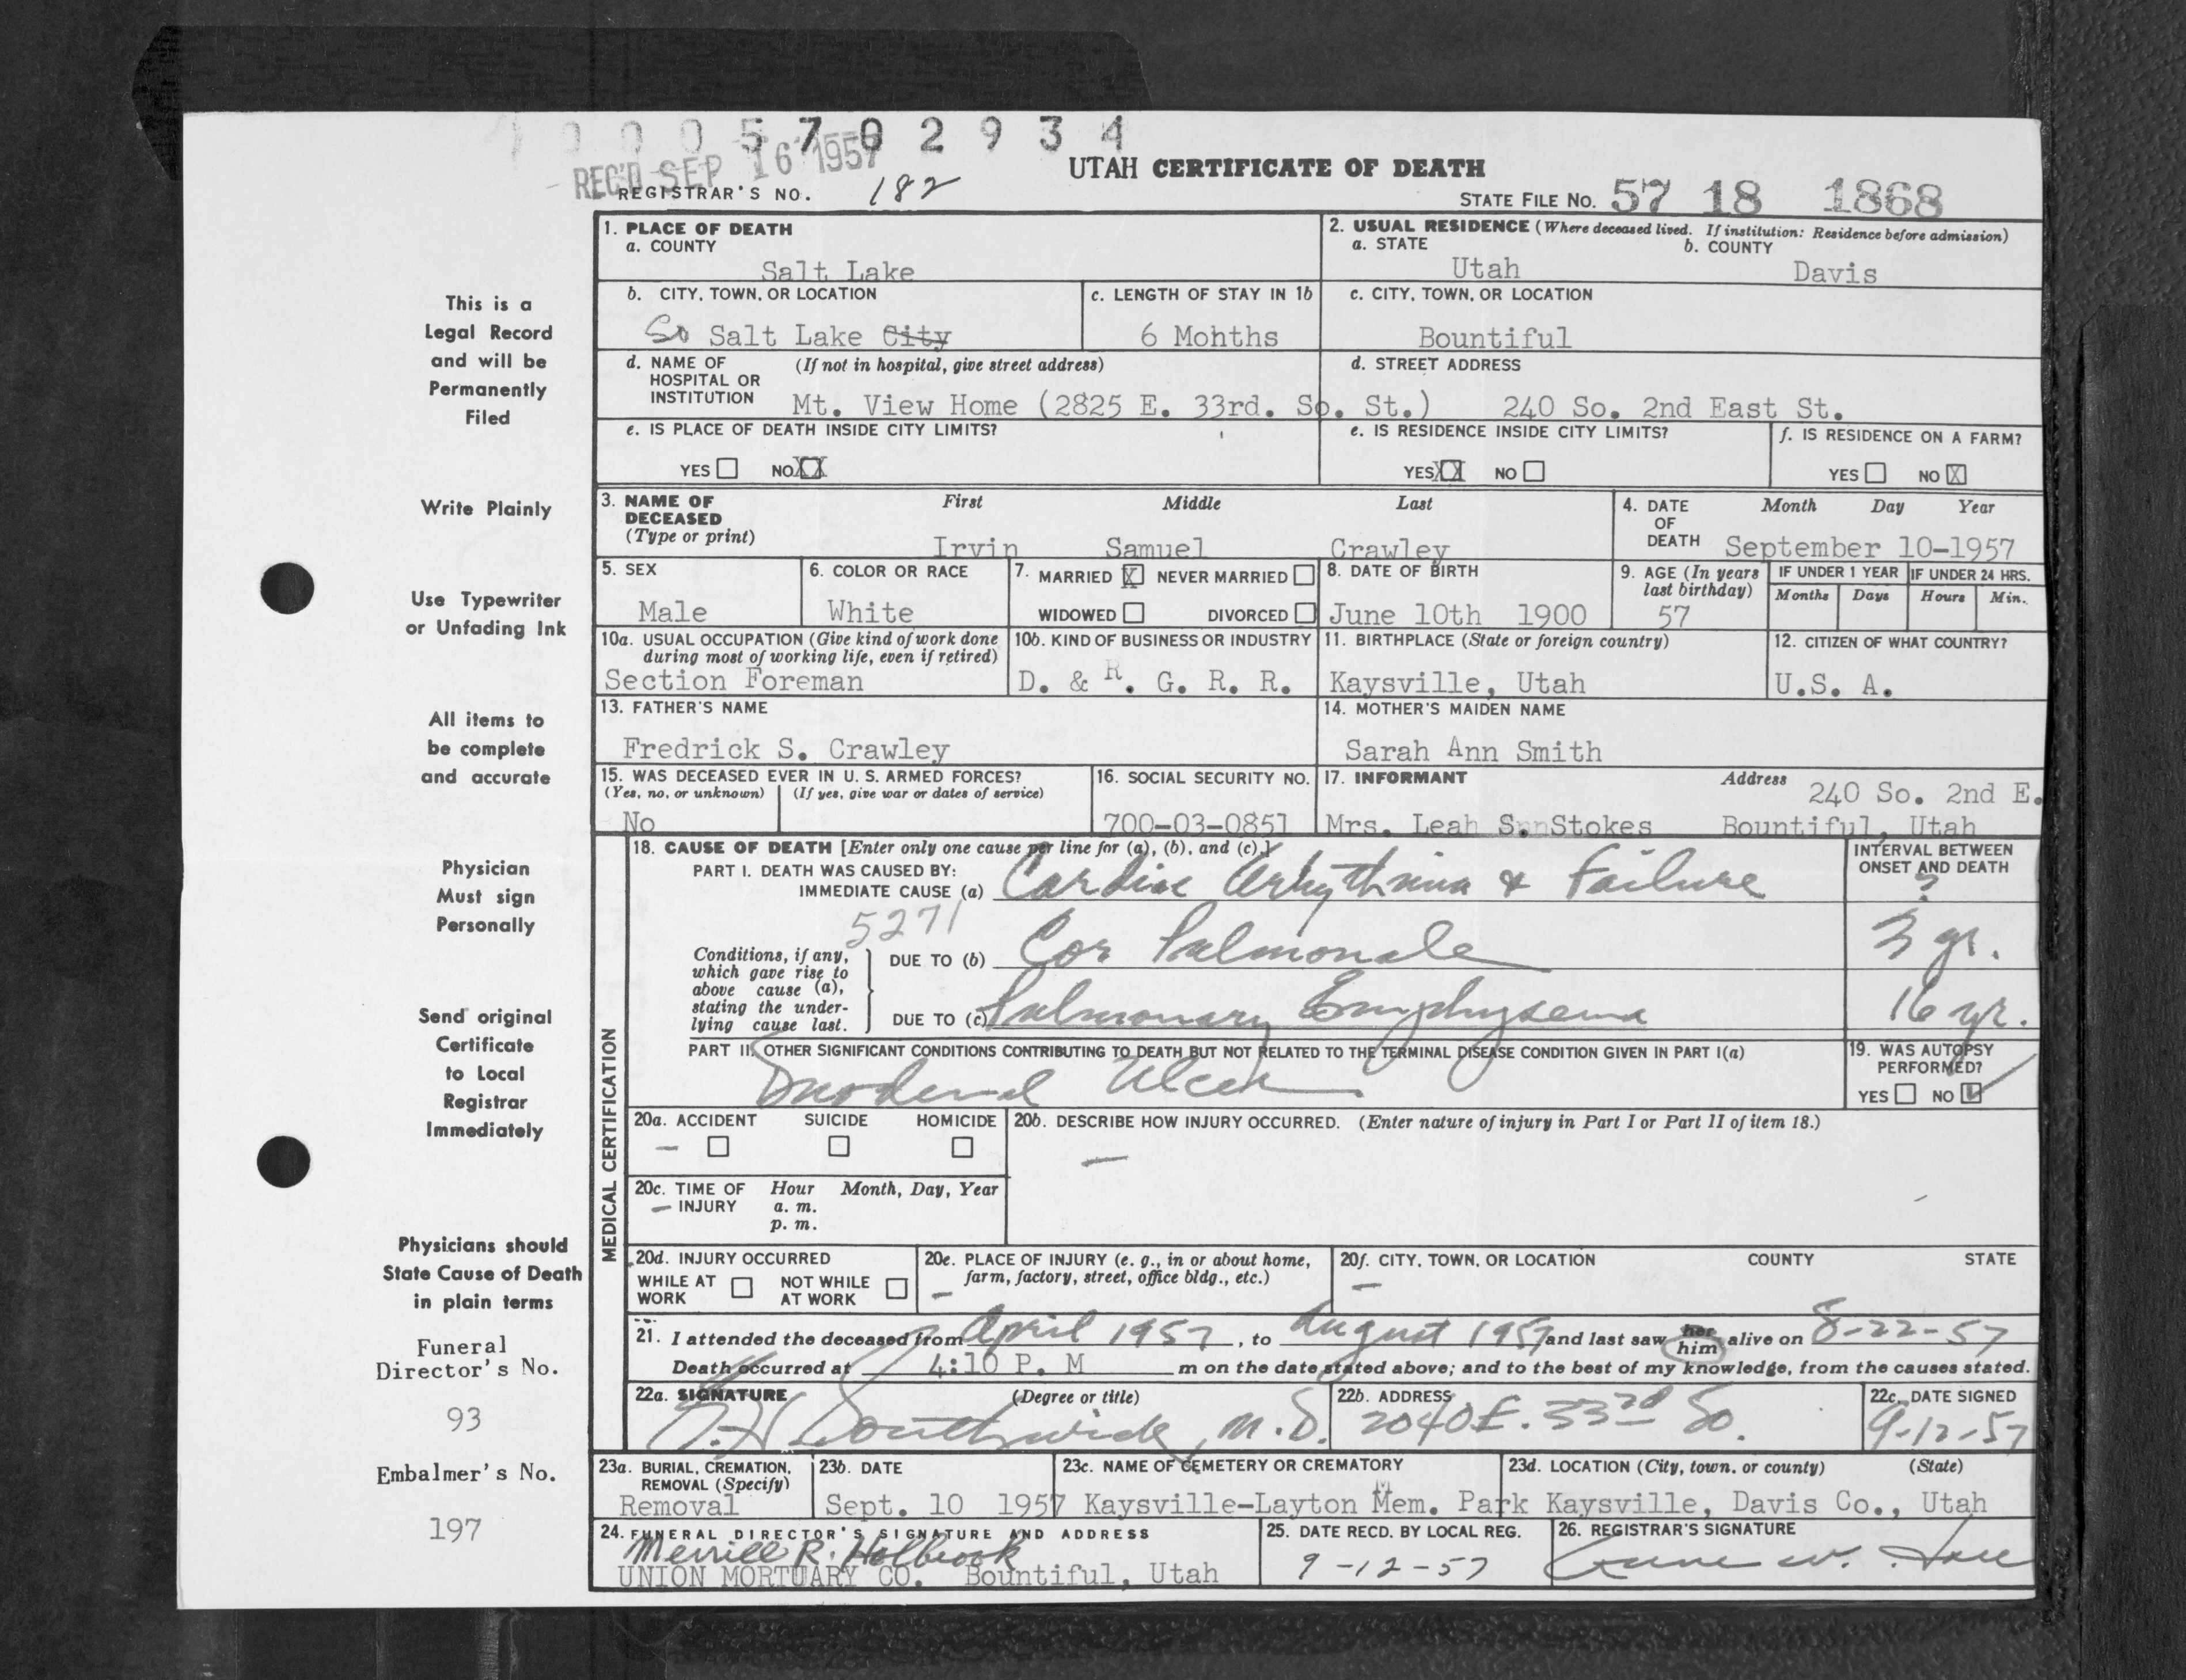 1 0 0 0 5 7 0 2 9 3 4
REC'D SEP 16 1957
UTAH CERTIFICATE OF DEATH
REGISTRAR'S NO. 182
STATE FILE NO. 57 18 1868
1. PLACE OF DEATH
a. COUNTY
Salt Lake
2. USUAL RESIDENCE (Where deceased lived. If institution: Residence before admission)
a. STATE b. COUNTY
Utah Davis
b. CITY, TOWN, OR LOCATION
So Salt Lake City
c. LENGTH OF STAY IN 1b
6 Mohths
c. CITY, TOWN, OR LOCATION
Bountiful
d. NAME OF (If not in hospital, give street address)
HOSPITAL OR
INSTITUTION Mt. View Home (2825 E. 33rd. So. St.)
d. STREET ADDRESS
240 So. 2nd East St.
e. IS PLACE OF DEATH INSIDE CITY LIMITS?
YES NO XX
e. IS RESIDENCE INSIDE CITY LIMITS?
YES XX NO
f. IS RESIDENCE ON A FARM?
YES NO X
3. NAME OF First Middle Last
DECEASED
(Type or print)
Irvin Samuel Crawley
4. DATE Month Day Year
OF
DEATH September 10-1957
5. SEX
Male
6. COLOR OR RACE
White
7. MARRIED X NEVER MARRIED
WIDOWED DIVORCED
8. DATE OF BIRTH
June 10th 1900
9. AGE (In years
last birthday)
57
IF UNDER 1 YEAR
Months Days
IF UNDER 24 HRS.
Hours Min.
10a. USUAL OCCUPATION (Give kind of work done
during most of working life, even if retired)
Section Foreman
10b. KIND OF BUSINESS OR INDUSTRY
D. & R. G. R. R.
11. BIRTHPLACE (State or foreign country)
Kaysville, Utah
12. CITIZEN OF WHAT COUNTRY?
U.S. A.
13. FATHER'S NAME
Fredrick S. Crawley
14. MOTHER'S MAIDEN NAME
Sarah Ann Smith
15. WAS DECEASED EVER IN U. S. ARMED FORCES?
(Yes, no, or unknown) (If yes, give war or dates of service)
No
16. SOCIAL SECURITY NO.
700-03-0851
17. INFORMANT Address
240 So. 2nd E.
Mrs. Leah S. Stokes Bountiful, Utah
MEDICAL CERTIFICATION
18. CAUSE OF DEATH [Enter only one cause per line for (a), (b), and (c).]
PART I. DEATH WAS CAUSED BY:
IMMEDIATE CAUSE (a) Cardiac Arhythmia & Failure
INTERVAL BETWEEN
ONSET AND DEATH
?
5271
Conditions, if any,
which gave rise to
above cause (a),
stating the under-
lying cause last.
DUE TO (b) Cor Pulmonale
3 yr.
DUE TO (c) Pulmonary Emphysema
16 yr.
PART II. OTHER SIGNIFICANT CONDITIONS CONTRIBUTING TO DEATH BUT NOT RELATED TO THE TERMINAL DISEASE CONDITION GIVEN IN PART I(a)
Duodenal Ulcer
19. WAS AUTOPSY
PERFORMED?
YES NO ✓
20a. ACCIDENT SUICIDE HOMICIDE
—
20b. DESCRIBE HOW INJURY OCCURRED. (Enter nature of injury in Part I or Part II of item 18.)
—
20c. TIME OF Hour Month, Day, Year
— INJURY a. m.
p. m.
20d. INJURY OCCURRED
WHILE AT NOT WHILE
WORK AT WORK
20e. PLACE OF INJURY (e. g., in or about home,
farm, factory, street, office bldg., etc.)
—
20f. CITY, TOWN, OR LOCATION COUNTY STATE
—
21. I attended the deceased from April 1957, to August 1957 and last saw her him alive on 8-22-57
Death occurred at 4:10 P. M m on the date stated above; and to the best of my knowledge, from the causes stated.
22a. SIGNATURE (Degree or title)
Southwick, M.D.
22b. ADDRESS
2040 E. 33rd So.
22c. DATE SIGNED
9-12-57
23a. BURIAL, CREMATION,
REMOVAL (Specify)
Removal
23b. DATE
Sept. 10 1957
23c. NAME OF CEMETERY OR CREMATORY
Kaysville-Layton Mem. Park
23d. LOCATION (City, town, or county) (State)
Kaysville, Davis Co., Utah
24. FUNERAL DIRECTOR'S SIGNATURE AND ADDRESS
Merrill R. Holbrook
UNION MORTUARY CO. Bountiful, Utah
25. DATE RECD. BY LOCAL REG.
9-12-57
26. REGISTRAR'S SIGNATURE
This is a
Legal Record
and will be
Permanently
Filed
Write Plainly
Use Typewriter
or Unfading Ink
All items to
be complete
and accurate
Physician
Must sign
Personally
Send original
Certificate
to Local
Registrar
Immediately
Physicians should
State Cause of Death
in plain terms
Funeral
Director's No.
93
Embalmer's No.
197